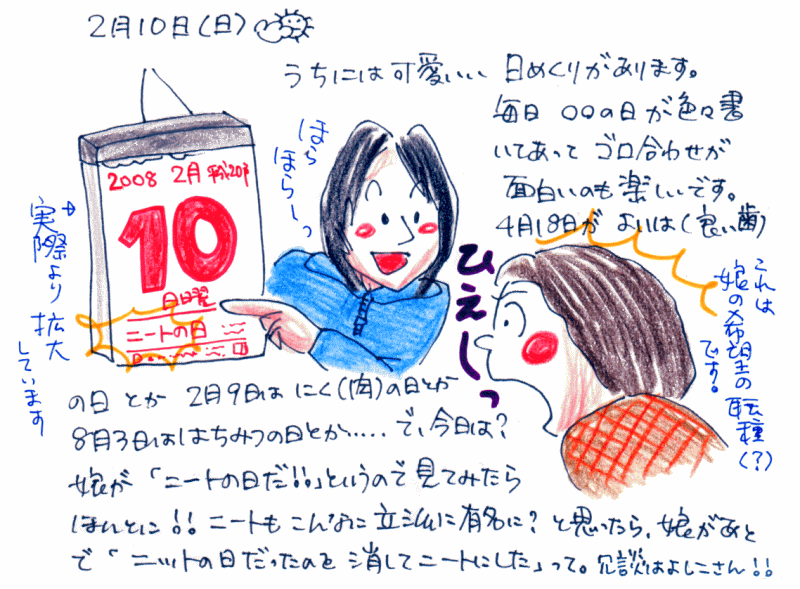 2月10日(日)
うちには可愛いい 日めくりがあります。
毎日 〇〇の日が色々書
いてあって ゴロ合わせが
面白いのも楽しいです。
4月18日が よいは(良い歯)
ほら
ほらーっ
2008 2月 平成20年
10
日曜
ニートの日
→実際より拡大
しています
ひえーっ
これは
娘の希望の転種
です。(?)
の日 とか 2月9日は にく(肉)の日とか
8月3日ははちみつの日とか..... で、今日は?
娘が「ニートの日だ!!」というので見てみたら
ほんとに!! ニートもこんなに立派に有名に? と思ったら、娘があと
で「ニットの日だったのを 消してニートにした」って。冗談はよしこさん!!